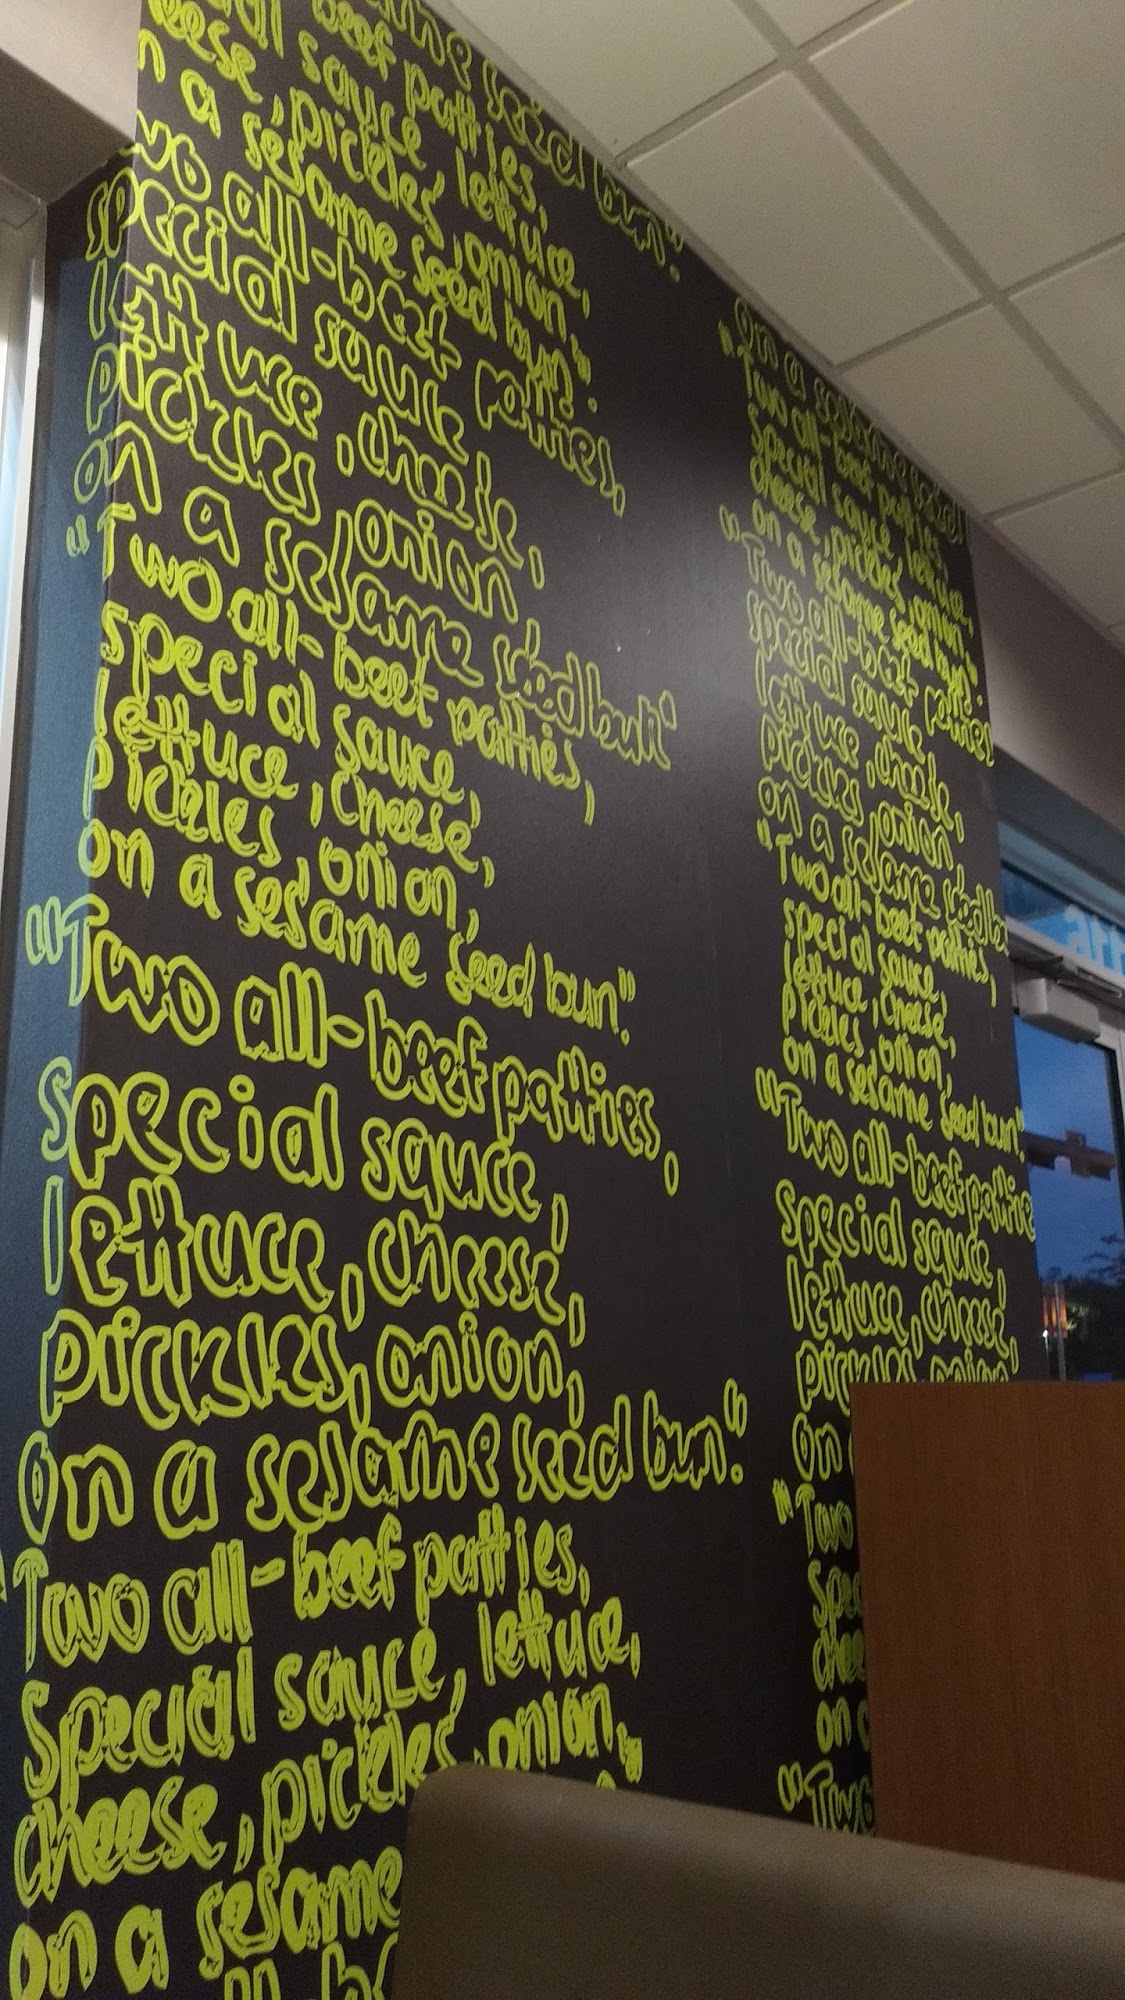 sesame seed bun."
special sauce, lettuce,
cheese, pickles, onion,
on a sesame seed bun."
Two all-beef patties,
special sauce
lettuce, cheese,
pickles, onion
on a sesame seed bun"
"Two all-beef patties,
special sauce,
lettuce, cheese,
pickles, onion,
on a sesame seed bun".
"Two all-beef patties,
special sauce,
lettuce, cheese,
pickles, onion,
on a sesame seed bun".
Two all-beef patties,
special sauce, lettuce,
cheese, pickles, onion,
on a sesame
on a sesame seed
"Two all-beef patties
special sauce, lettuce
cheese, pickles, onion,
on a sesame seed bun"
"Two all-beef patties
special sauce
lettuce, cheese,
pickles, onion
on a sesame seed bu
"Two all-beef patties,
special sauce,
lettuce, cheese,
pickles, onion,
on a sesame seed bun"
"Two all-beef pattie
special sauce,
lettuce, cheese,
pickles, onion,
on
"Two
spec
chee
on a
"Two